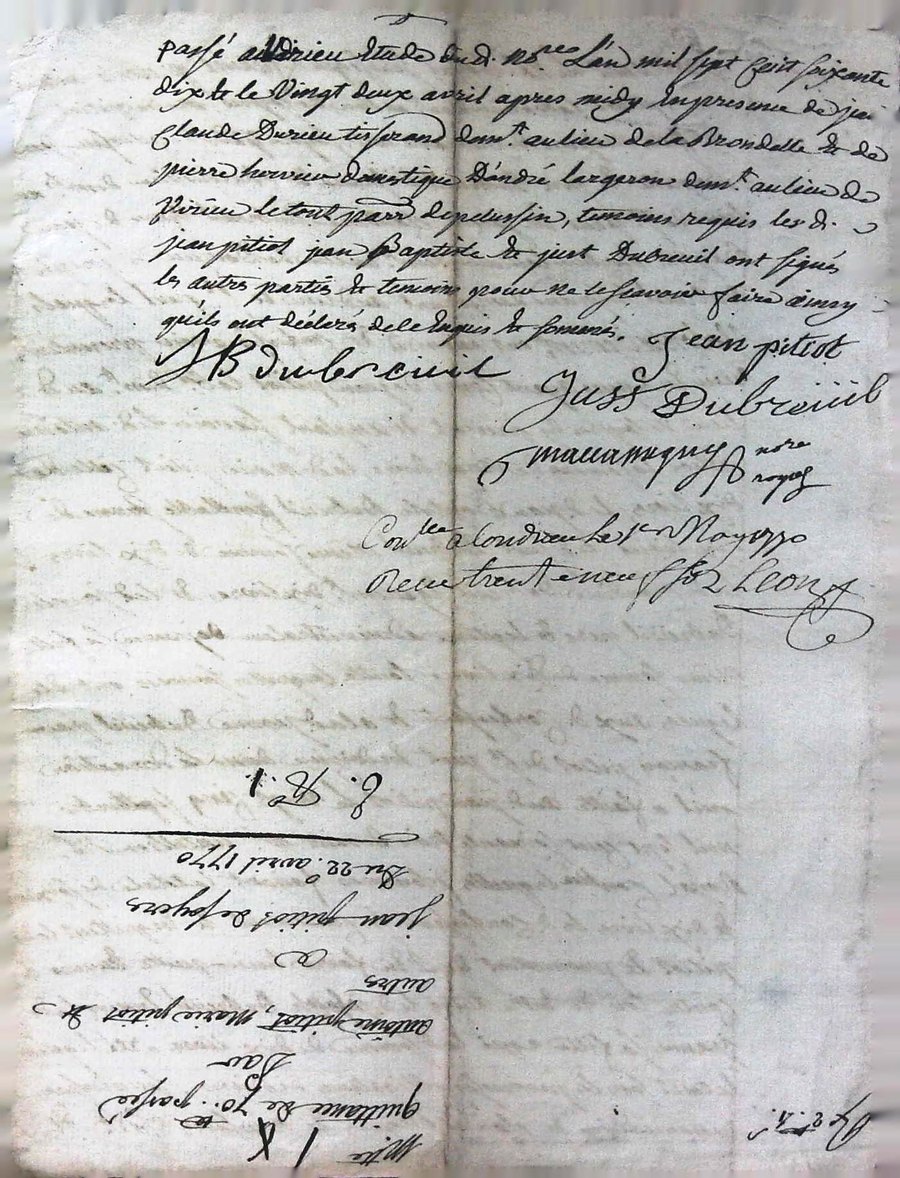 passé audit Virieu Etude du d. no.re L'an mil sept cent soixante
dix & le Vingt deux avril apres midy En presence de jean
Claude Durieu tisserand dem.t au lieu de la Brondelle & de
pierre hervieu domestique D'andré largeron dem.t au lieu de
Virieu le tout parr. de pelussin, temoins requis les d.
jean pitiot jean Baptiste & just Dubreuil ont signés
les autres parties & temoins pour ne le scavoir faire ainsy
qu'ils ont déclaré de ce Enquis & somés. Jean pitiot
JB dubreuil
Just Dubreüil
no.re
royal
Con.lee a Condrieu le 1er May 1770
Recu trente neuf s. Leon
E. N.° 1.
Du 22.e avril 1770
jean pitiot de soyeres
a
autres
antoine pitiot, Marie pitiot &
Par
quittance de 70.tt passée